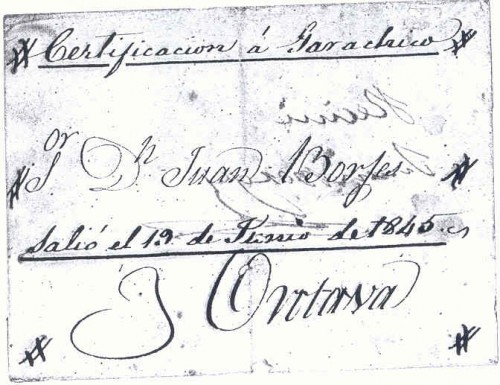 Certificacion á Garachico
Sor Dn Juan Borjes
Salió el 13 de Junio de 1845.
Orotava